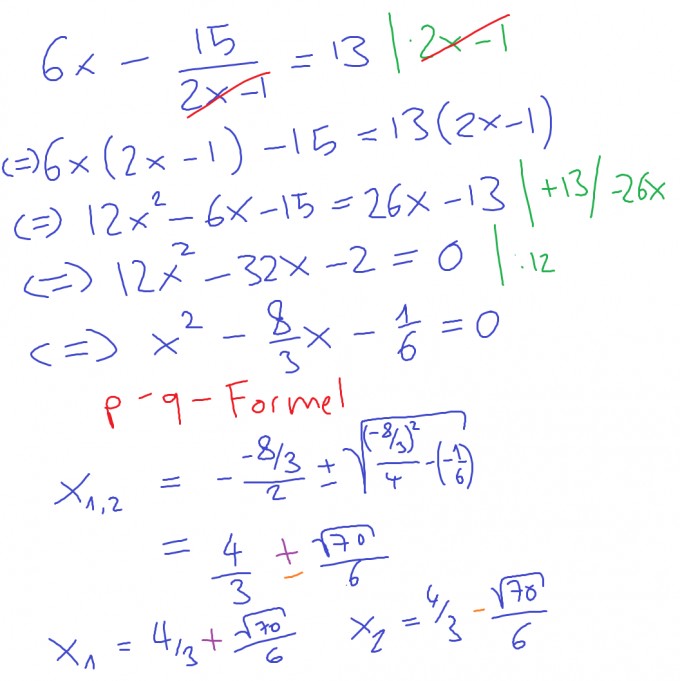 6x - 15/(2x-1) = 13 | ·2x-1
(=) 6x(2x-1) -15 = 13(2x-1)
(=) 12x² - 6x - 15 = 26x - 13 | +13 / -26x
<=> 12x² - 32x - 2 = 0 | :12
<=> x² - 8/3 x - 1/6 = 0
p-q-Formel
x₁,₂ = - (-8/3)/2 ± √((-8/3)²/4 - (-1/6))
= 4/3 ± √70/6
x₁ = 4/3 + √70/6 x₂ = 4/3 - √70/6